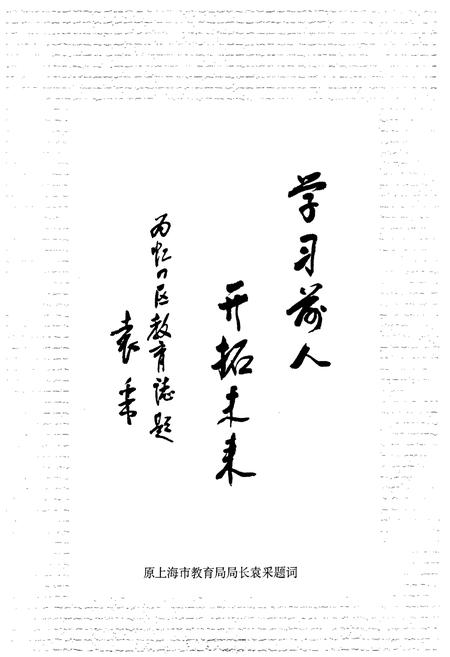 学习前人
开拓未来
为虹口区教育誌题
袁采
原上海市教育局局长袁采题词